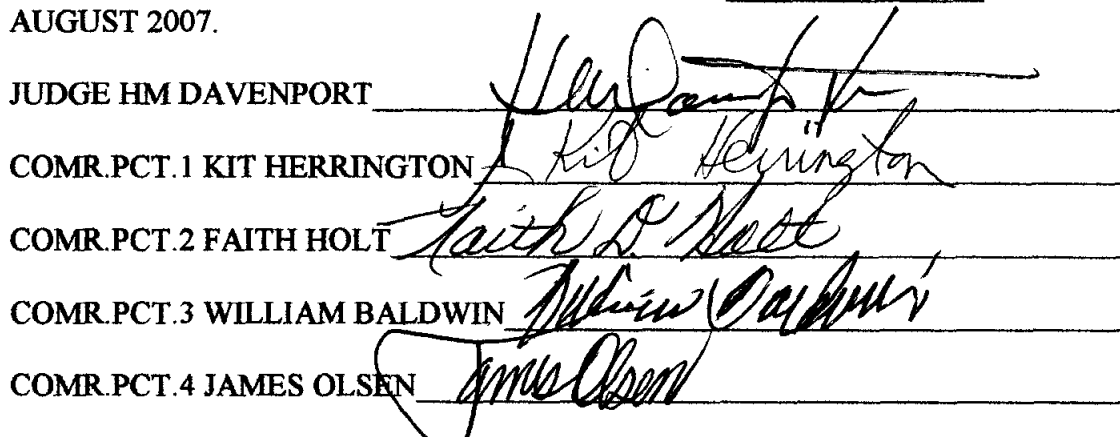 AUGUST 2007.
JUDGE HM DAVENPORT
COMR.PCT.1 KIT HERRINGTON Kit Herrington
COMR.PCT.2 FAITH HOLT Faith D. Holt
COMR.PCT.3 WILLIAM BALDWIN William Baldwin
COMR.PCT.4 JAMES OLSEN James Olsen